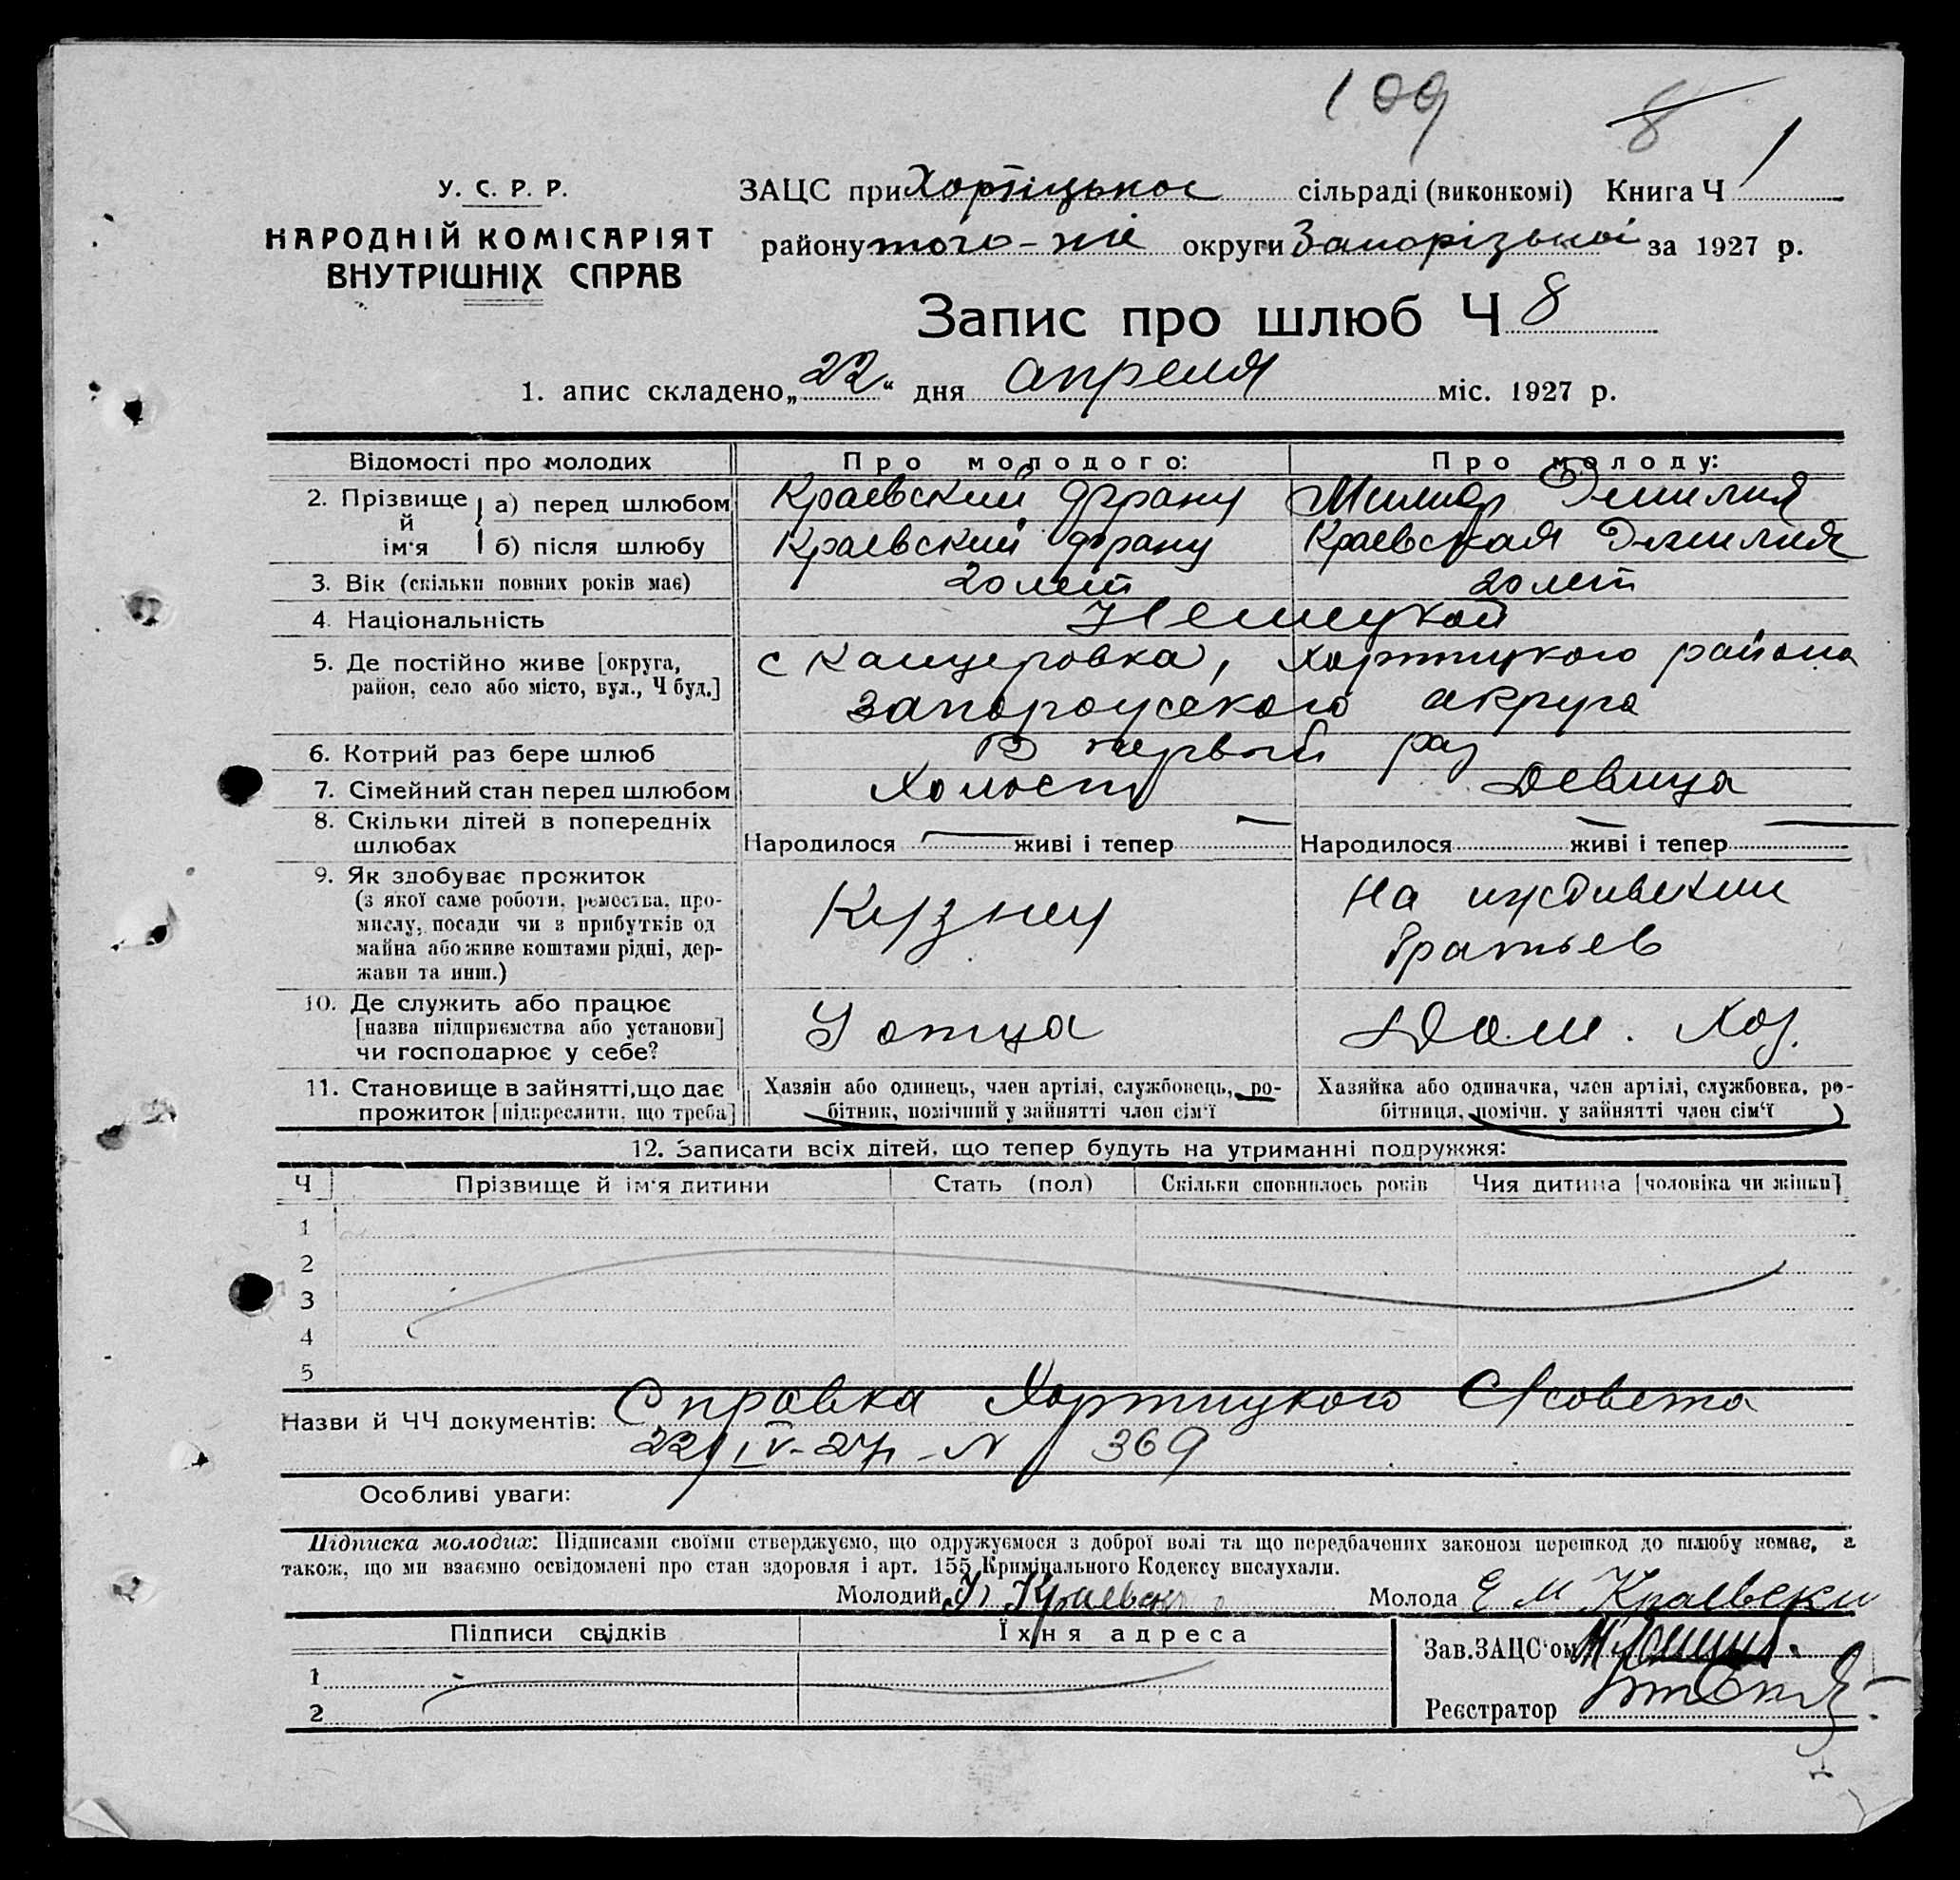 109 8 1
У. С. Р. Р.
НАРОДНІЙ КОМІСАРІЯТ
ВНУТРІШНІХ СПРАВ
ЗАЦС при Хортіцькос сільраді (виконкомі) Книга Ч
району того-же округи Запорізькоі за 1927 р.
Запис про шлюб Ч 8
1. апис складено „22“ дня апреля міс. 1927 р.
Відомості про молодих Про молодого: Про молоду:
2. Прізвище й ім‘я а) перед шлюбом Краевский Франц Миллер Эмилия
б) після шлюбу Краевский Франц Краевская Эмилия
3. Вік (скільки повних років має) 20 лет 20 лет
4. Національність Немецкой
5. Де постійно живе [округа, с Канцеровка, Хортицкого района
район, село або місто, вул., Ч буд.] Запорожского округа
6. Котрий раз бере шлюб В первый раз
7. Сімейний стан перед шлюбом Холост Девица
8. Скільки дітей в попередніх
шлюбах Народилося — живі і тепер — Народилося — живі і тепер —
9. Як здобуває прожиток
(з якої саме роботи, ремества, про-
мислу, посади чи з прибутків од
майна або живе коштами рідні, дер-
жави та инш.)
Кузнец
На иждивении
братьев
10. Де служить або працює
[назва підприємства або установи]
чи господарює у себе?
У отца Дом. Хоз.
11. Становище в зайнятті, що дає
прожиток [підкреслити, що треба]
Хазяїн або одинець, член артілі, службовець, ро-
бітник, помічний у зайнятті член сім‘ї
Хазяйка або одиначка, член артілі, службовка, ро-
бітниця, помічн. у зайнятті член сім‘ї
12. Записати всіх дітей, що тепер будуть на утриманні подружжя:
Ч Прізвище й ім‘я дитини Стать (пол) Скільки сповнилось років Чия дитина [чоловіка чи жінки]
1
2
3
4
5
Назви й ЧЧ документів: Справка Хортицкого С/совета
22/IV-27г - N 369
Особливі уваги:
Підписка молодих: Підписами своїми стверджуємо, що одружуємося з доброї волі та що передбачених законом перешкод до шлюбу немає, а
також, що ми взаємно освідомлені про стан здоровля і арт. 155 Кримінального Кодексу вислухали.
Молодий Краевск Молода Е М Краевски
Підписи свідків Їхня адреса Зав. ЗАЦС‘ом
1
2 Реєстратор